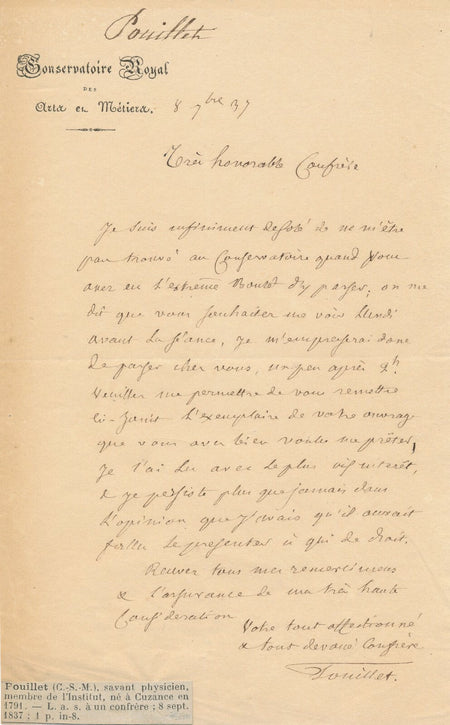 Pouillet
Conservatoire Royal
DES
Arts et Métiers.
8 7bre 37
Très honorable Confrère
Je suis infiniment desolé de ne m'être
pas trouvé au Conservatoire quand vous
avez eu l'extrême bonté d'y passer; on me
dit que vous souhaitez me voir Lundi
avant la séance, je m'empresserai donc
de passer chez vous, un peu après 2h.
Veuillez me permettre de vous remettre
ci-joint l'exemplaire de votre ouvrage
que vous avez bien voulu me prêter,
Je l'ai lu avec le plus vif interêt,
& je persiste plus que jamais dans
l'opinion que j'avais qu'il aurait
fallu le presenter à qui de droit.
Recevez tous mes remerciemens
& l'assurance de ma très haute
Consideration
Votre tout affectionné
& tout devoué Confrère
Pouillet.
Pouillet (C.-S.-M.), savant physicien,
membre de l'Institut, né à Cuzance en
1791. — L. a. s. à un confrère ; 8 sept.
1837 ; 1 p. in-8.